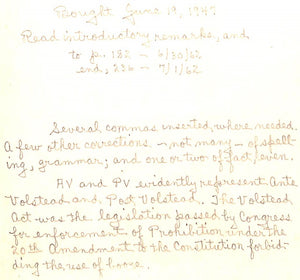 Bought June 19, 1947
Read introductory remarks, and
to p. 182 - 6/30/62
end, 236 - 7/1/62
Several commas inserted, where needed.
A few other corrections, - not many - of spell-
ing, grammar; and one or two of fact, even.
AV and PV evidently represent Ante
Volstead and Post Volstead. The Volstead
Act was the legislation passed by Congress
for enforcement of Prohibition under the
20th Amendment to the Constitution forbid-
ding the use of booze.